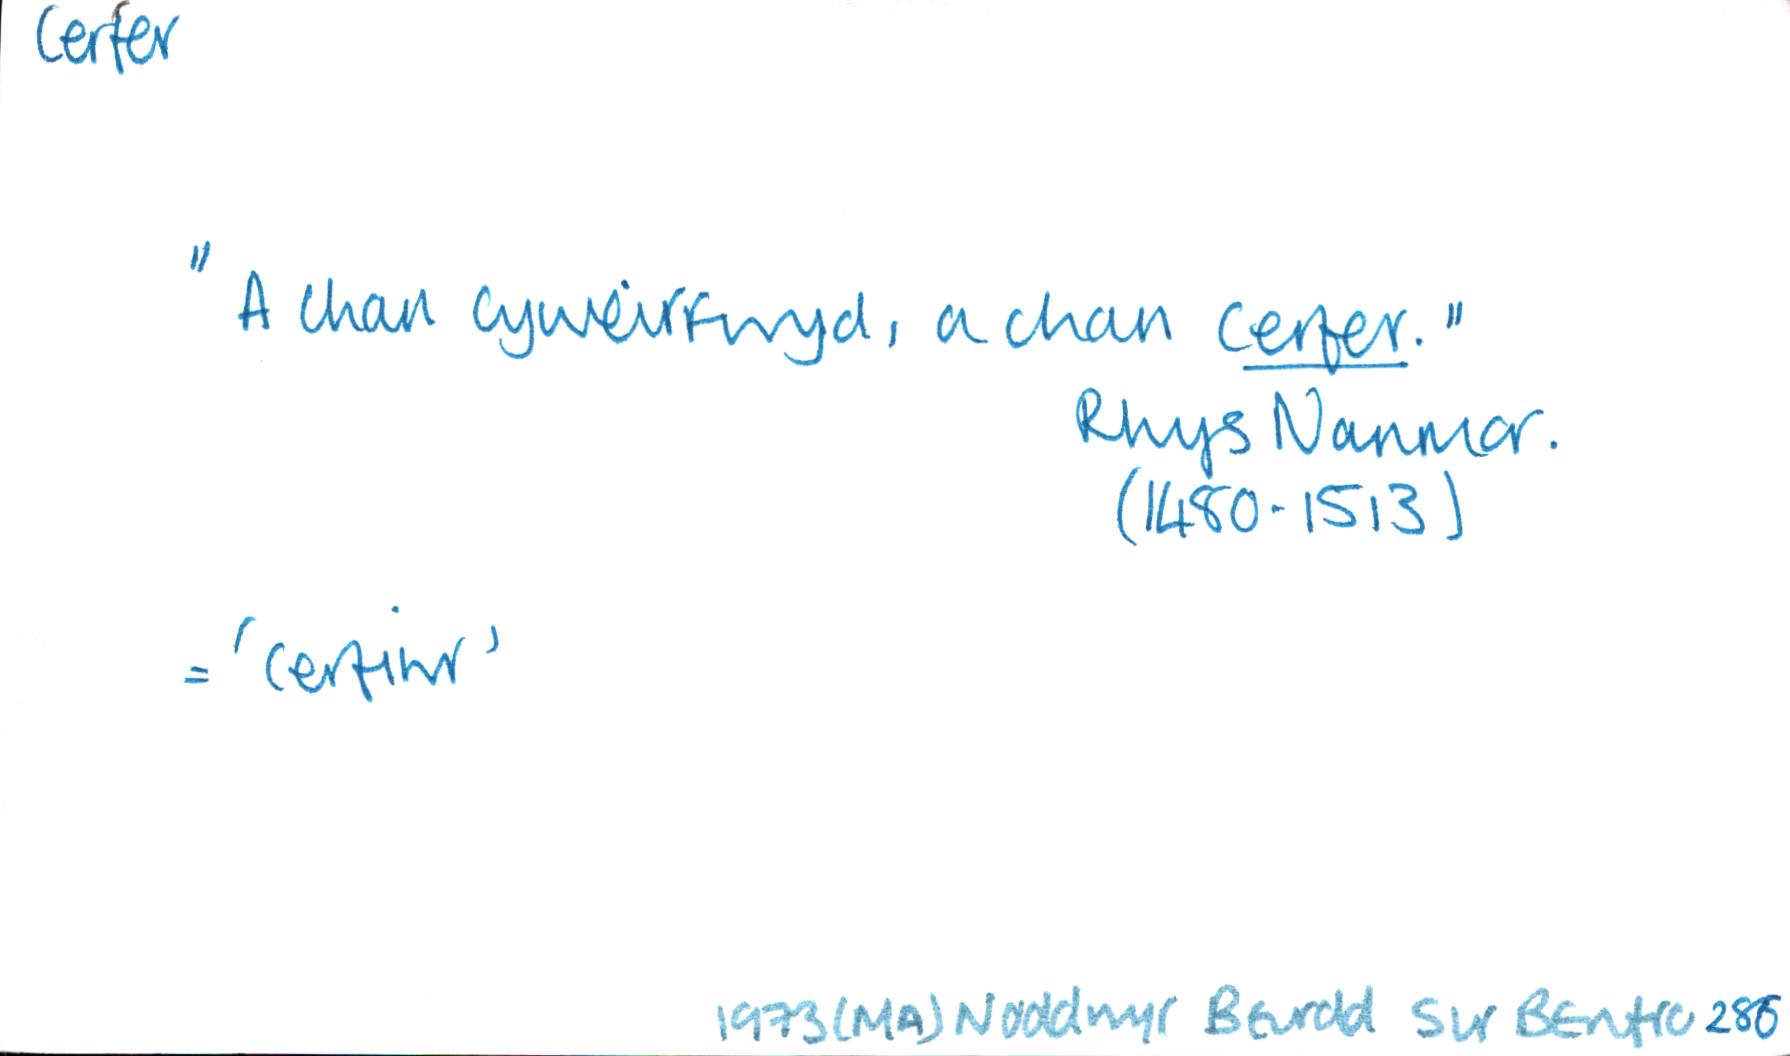 Cerfer
"A chan cyweirfwyd, a chan cerfer."
Rhys Nanmor.
(1480-1513)
= 'cerfiwr'
1973 (MA) Noddwyr Beirdd Sir BEnfro 286